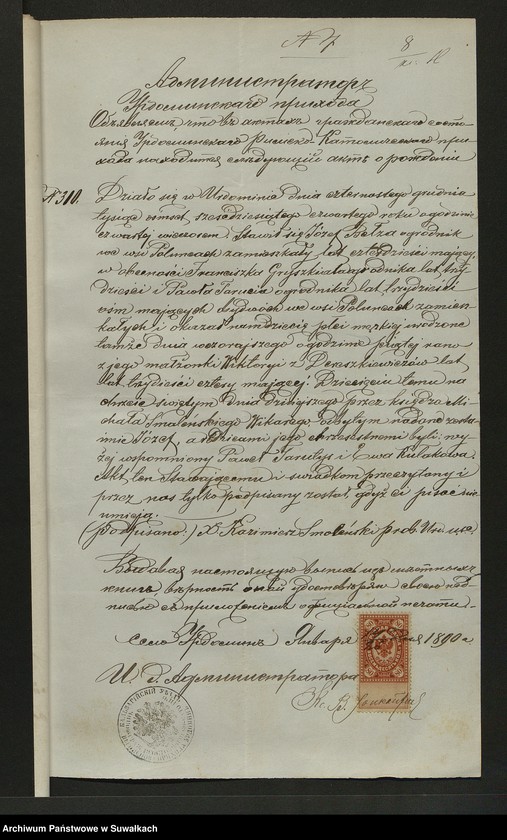 N 4
8
Администраторъ
Урдоминскаго прихода
Объявляетъ, что въ актахъ гражданскаго состо-
янія Урдоминскаго Римско-Католическаго при-
хода находится слѣдующій актъ о рожденіи
N 310. Działo się w Urdominie dnia czternastego grudnia
tysiąc ośmset sześdziesiątego czwartego roku o godzinie
czwartej wieczorem. Stawił się Józef ogrodnik
we wsi Poluncach zamieszkały, lat czterdzieści mający,
w obecności Franciszka ogrodnika lat trzy
dzieści i Pawła ogrodnika lat trzydzieści
ośm mających obydwóch we wsi Poluncach zamiesz-
kałych i okazał nam dziecię płci męzkiej urodzone
tamże dnia wczorajszego o godzinie piątej rano
z jego małżonki Wiktoryi z Dereszkiewiczów lat
lat trzydzieści cztery mającej. Dziecięciu temu na
chrzcie świętym dnia dzisiejszego przez księdza Mi-
chała Smoleńskiego Wikarego odbytym nadane zosta
imie Józef, a rodzicami jego chrzestnemi byli: wy-
żej wspomniony Paweł i Ewa Kułakowa.
Akt ten Stawającemu i świadkom przeczytany i
przez nas tylko podpisany został, gdyż ci pisać nie
umieją.
(podpisano:) X Kazimierz Smoleński prob. Urd.
настоящую выпись изъ
книгъ вѣрность оной удостовѣряю своею под-
писью съ приложеніемъ оффиціальной печати.
Село Урдоминъ Января 1890 г.
И. д. Администратора
Кс.
Archiwum Państwowe w Suwałkach